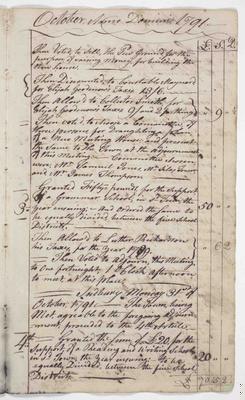 October Anno Domini 1791.
£ S D
Then Voted to Sell, the Pew Ground for the
purpose of raising money, for building the
new house.
Then Discounted to Constable Maynard
for Elijah Goodenows Taxes £3/6.
Then Allowd to Collector Smith for
Elijah Goodenows Taxes 9/ and 2 farthings 9
Then voted to choose a Committee of
three persons for draughting a plan of
a New Meeting House, and present
the Same to the Town at the adjournment
of this Meeting — Committee chosen
were, Mr. Samuel Jones Mr.
and Mr. James Thompson
3 Granted Fifty pounds for the Support
of a Grammar School, in Town the
year ensuing and ordered the same to
be equally divided between the five School
Districts. 50
Then Allowd to Luther Richardson
his Taxes for the year
Then Voted to Adjourn, this Meeting
to One fortnight, 1 oClock afternoon
to meet at this place
Sudbury Monday 31st of
October 1791. The Town having
Met agreeable to the foregoing adjourn-
ment, proceeded to the 4th Article
4th Granted the Sum of £20 for the
Support, of a Reading and Writing School
in Town the year ensuing to be
equally Divided, between the five School
Districts 20